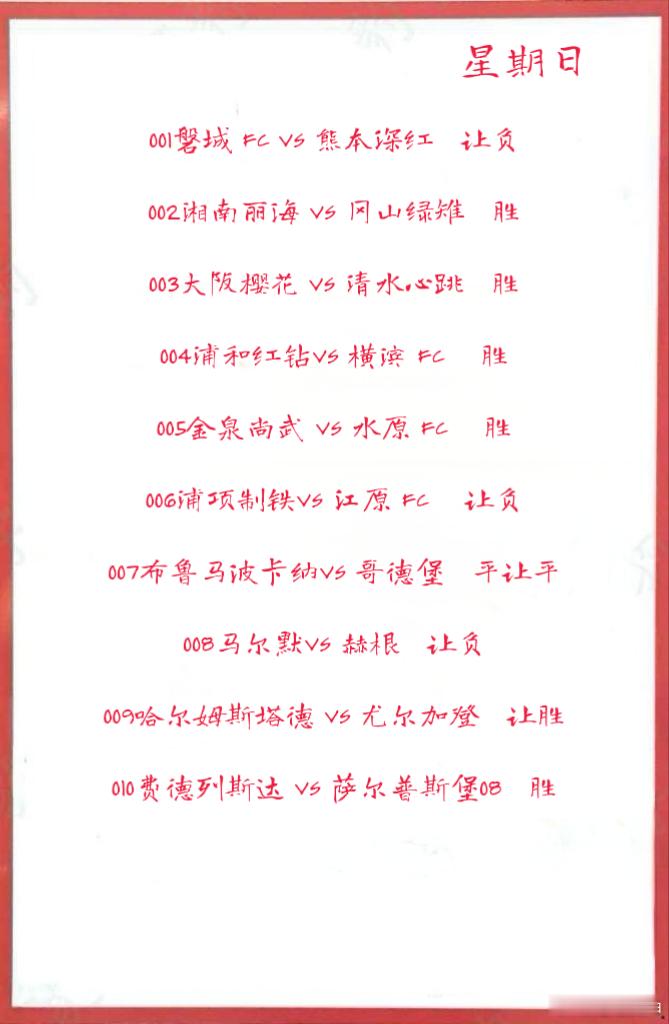 星期日
001磐城 FC VS 熊本深红 让负
002湘南丽海 VS 冈山绿雉 胜
003大阪樱花 VS 清水心跳 胜
004浦和红钻VS 横滨 FC 胜
005金泉尚武 VS 水原 FC 胜
006浦项制铁VS 江原 FC 让负
007布鲁马波卡纳VS 哥德堡 平让平
008马尔默VS 赫根 让负
009哈尔姆斯塔德 VS 尤尔加登 让胜
010费德列斯达 VS 萨尔普斯堡08 胜